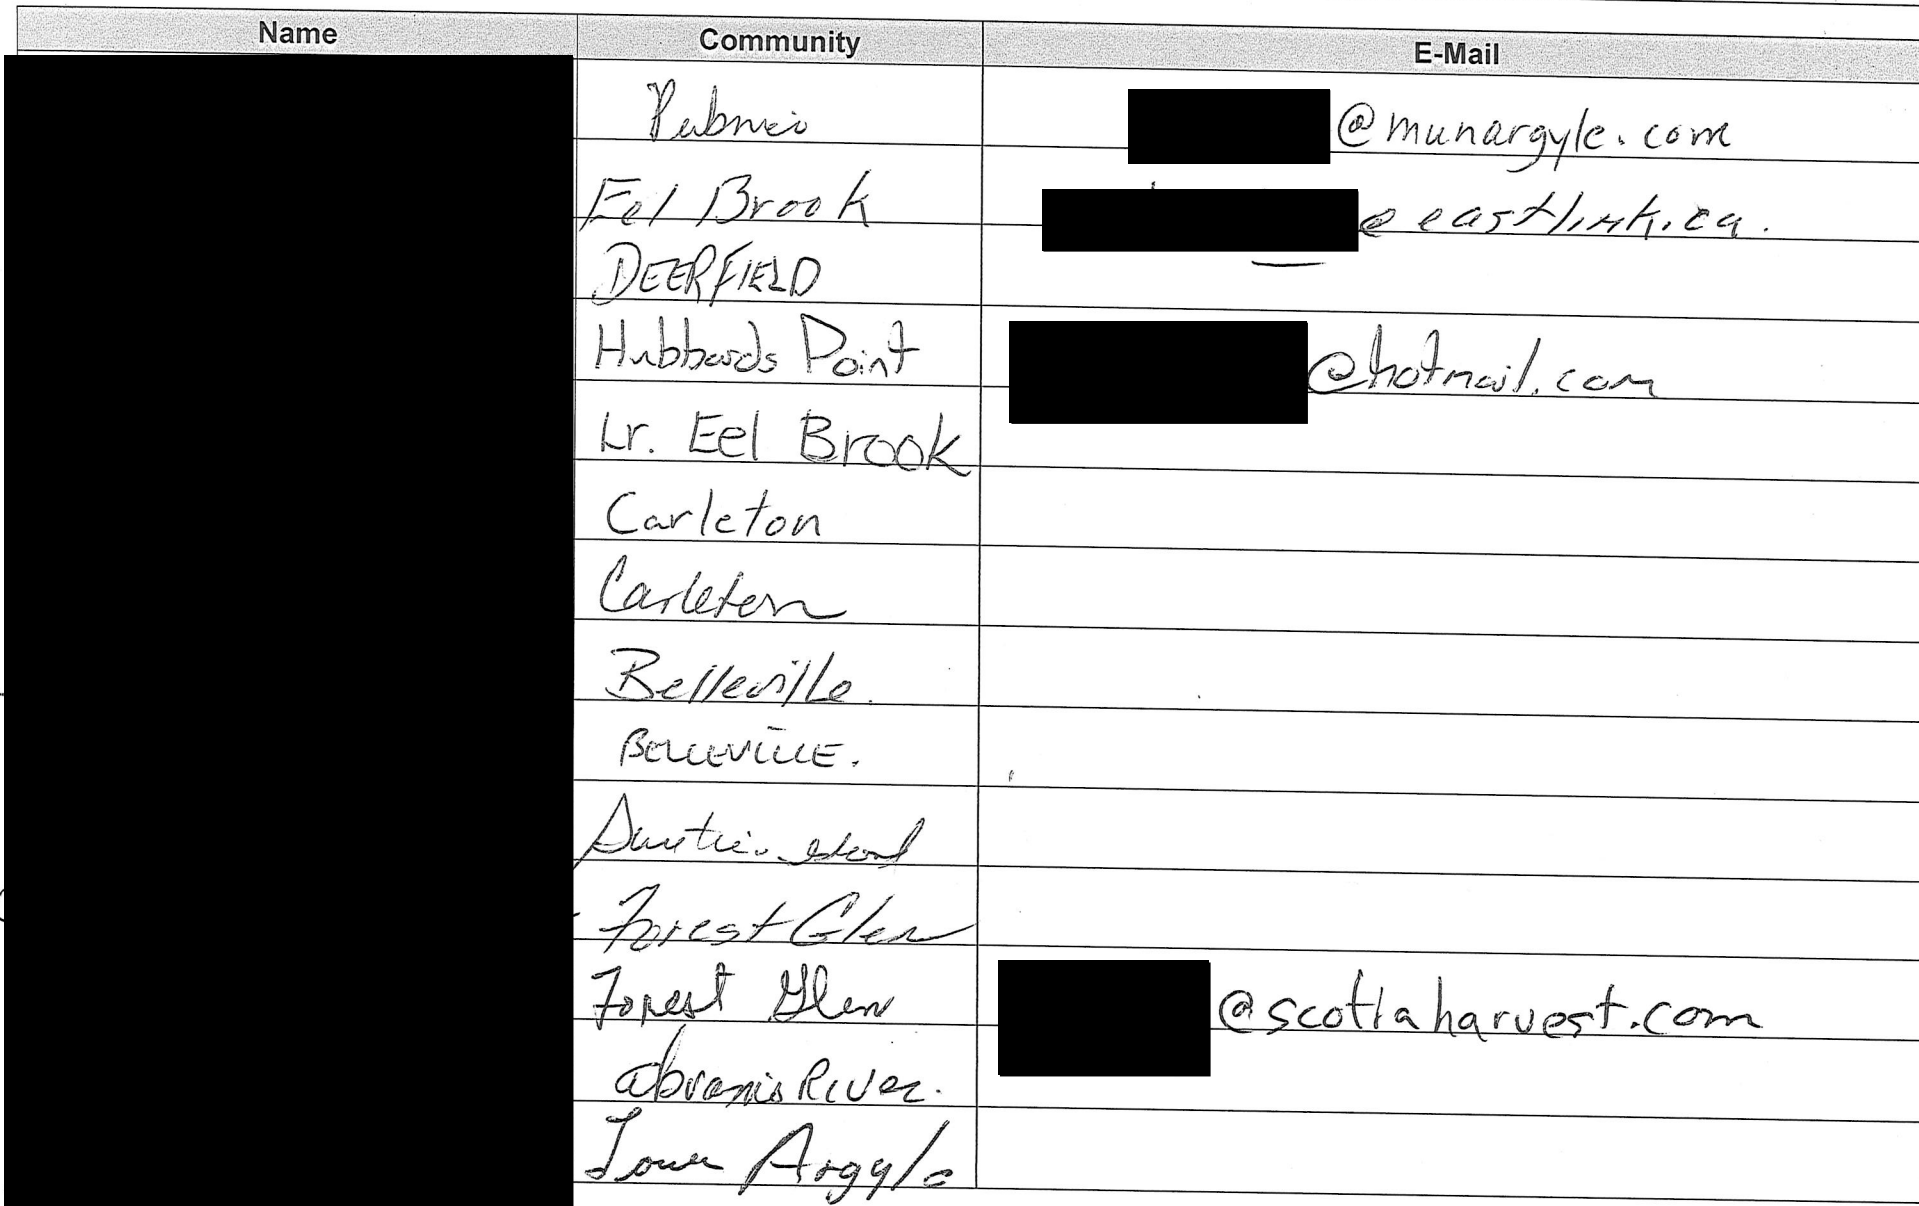 Name Community E-Mail
Pubnico @munargyle.com
Eel Brook @eastlink.ca.
DEERFIELD
Hubbards Point @hotmail.com
Lr. Eel Brook
Carleton
Carleton
Belleville.
BELLEVILLE.
Forest Glen
Forest Glen @scotiaharvest.com
abrams River.
Lower Argyle